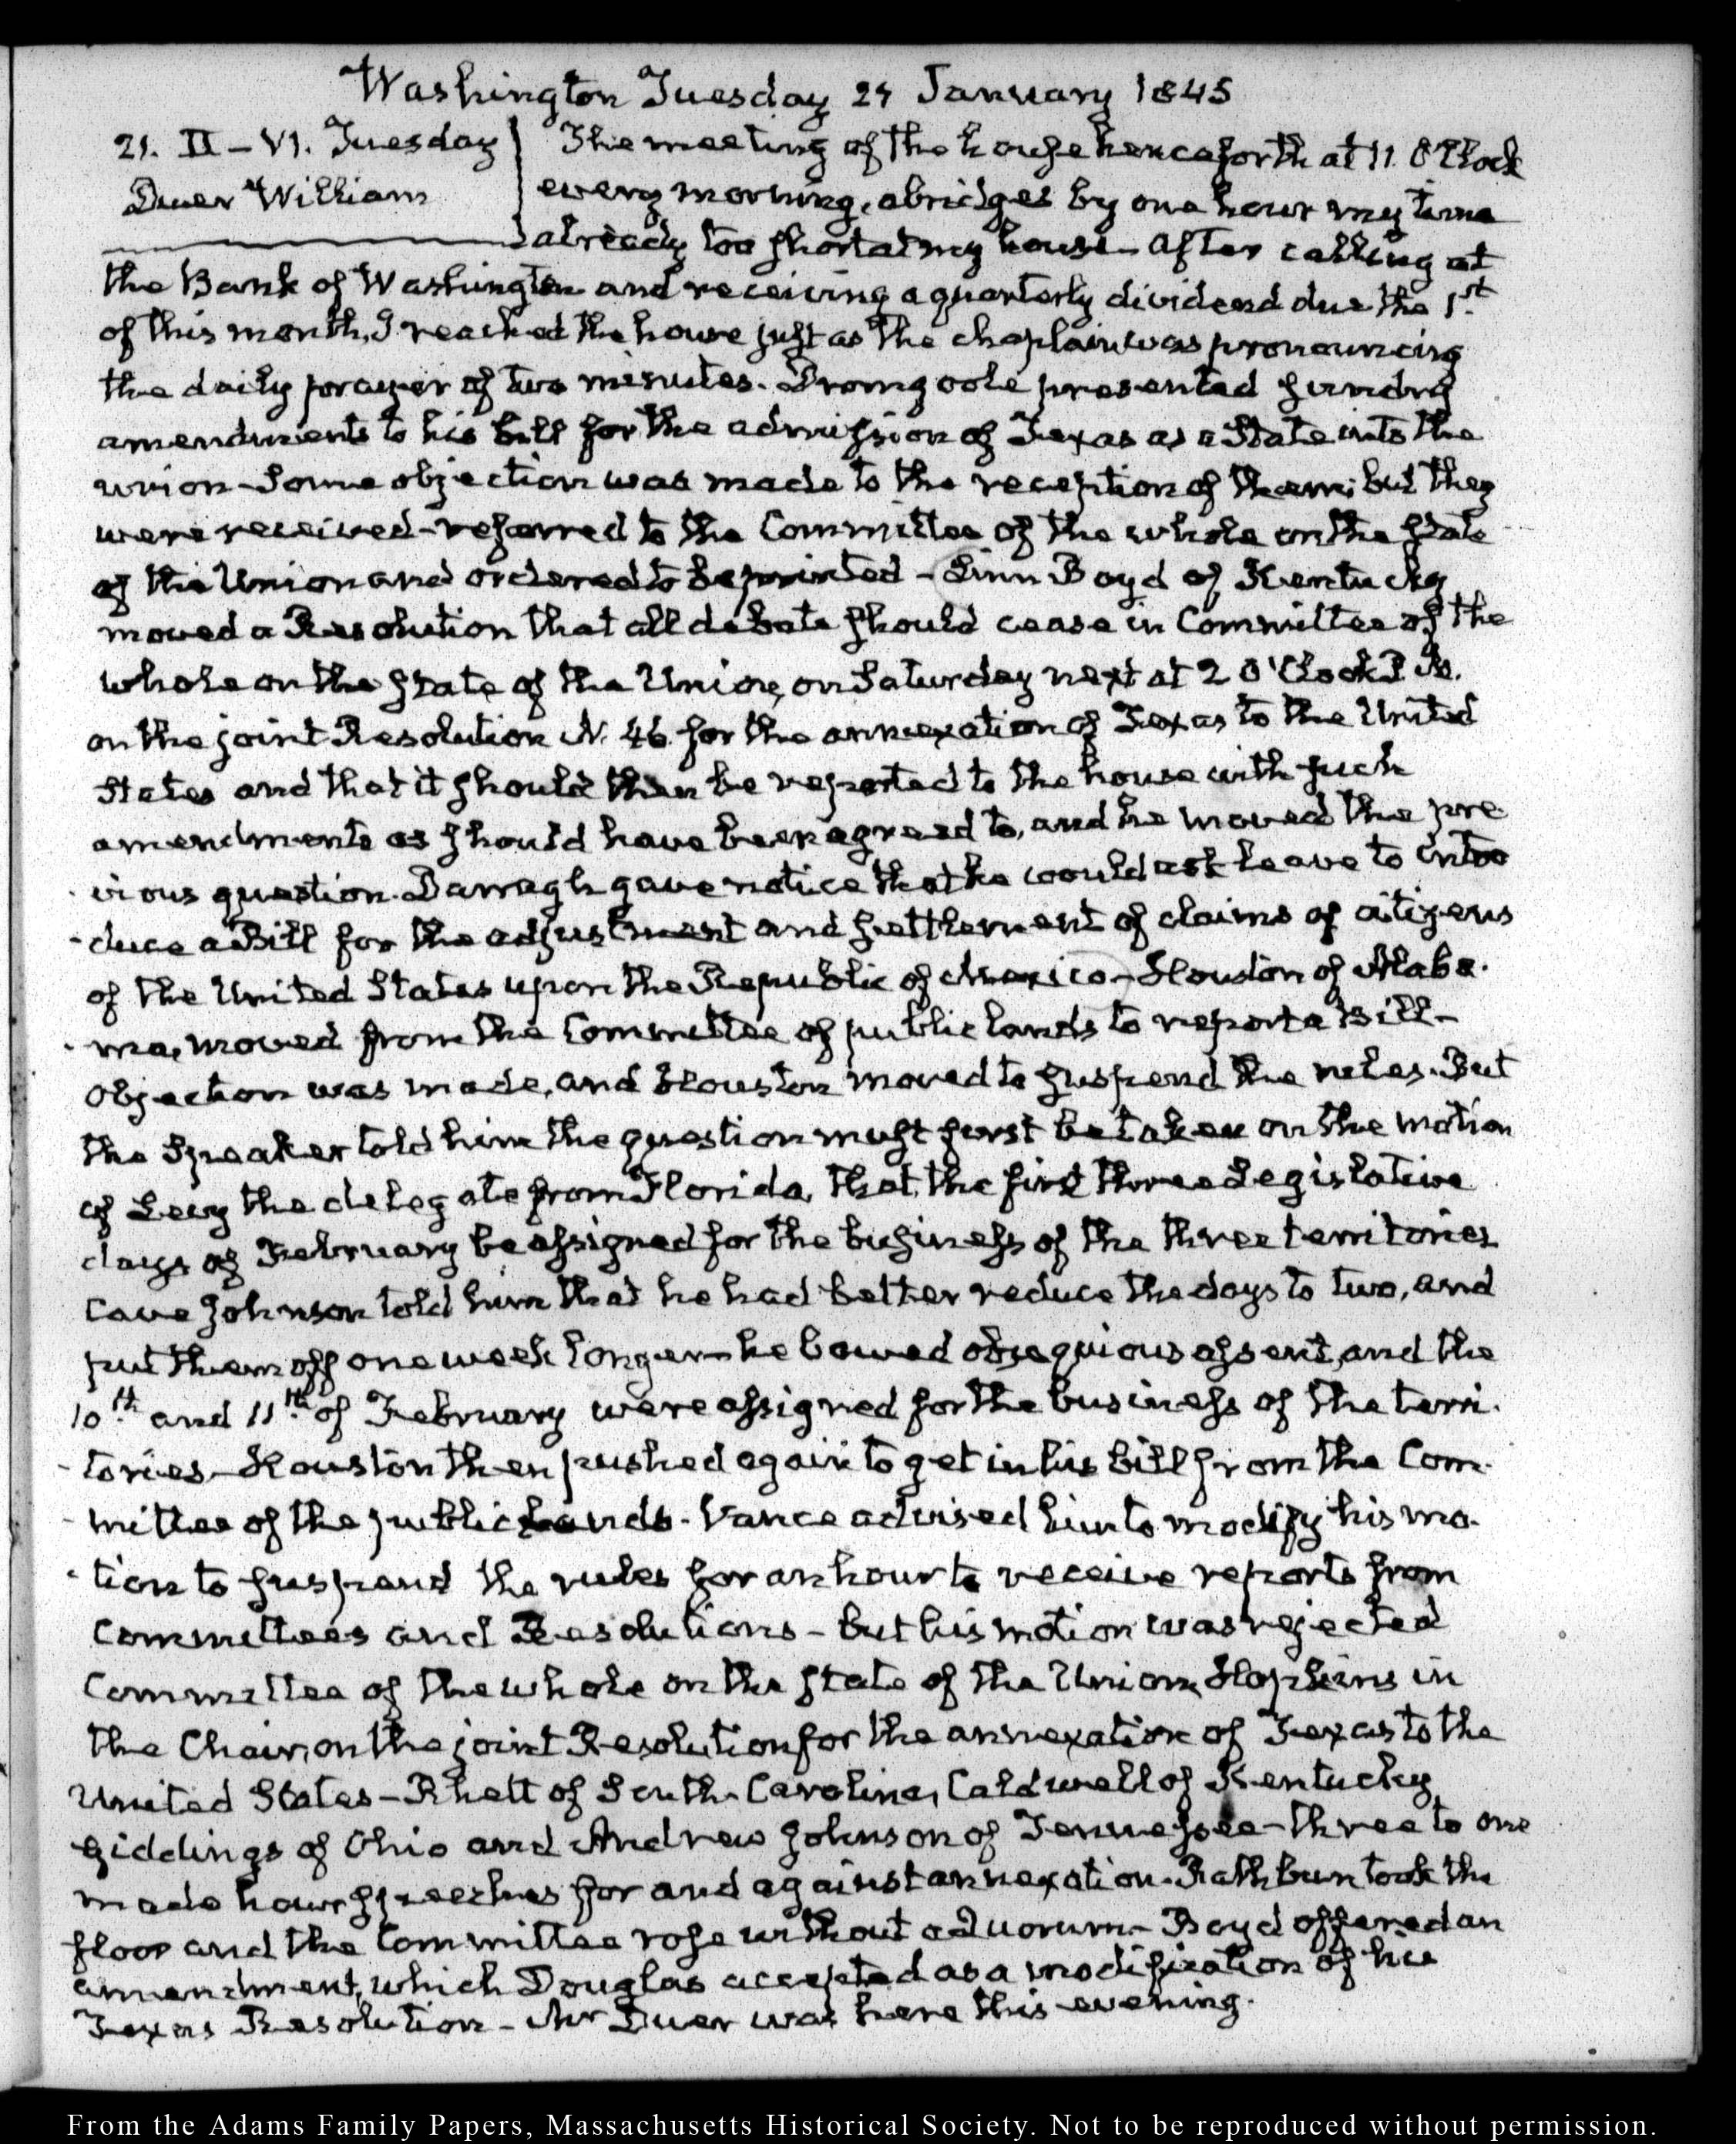 Washington Tuesday 21 January 1845
21. II – VI. Tuesday
Duer William
The meeting of the house henceforth at 11. O'Clock
every morning, abridges by one hour my time
already too short at my house – After calling at
the Bank of Washington and receiving a quarterly dividend due the 1st
of this month, I reached the house just as the chaplain was pronouncing
the daily prayer of two minutes. Dromgoole presented sundry
amendments to his bill for the admission of Texas as a State into the
union – Some objection was made to the reception of them; but they
were received – referred to the Committee of the whole on the state
of the Union and ordered to be printed – Linn Boyd of Kentucky
moved a Resolution that all debate should cease in Committee of the
whole on the state of the Union, on Saturday next at 2 O'Clock P.M.
on the joint Resolution N. 46. for the annexation of Texas to the United
States and that it should then be reported to the house with such
amendments as should have been agreed to, and he moved the pre
vious question. Darragh gave notice that he would ask leave to intro
duce a Bill for the adjustment and settlement of claims of citizens
of the United States upon the Republic of Mexico – Houston of Alaba-
ma, moved from the Committee of public lands to report a Bill –
objection was made, and Houston moved to suspend the rules. But
the Speaker told him the question must first be taken on the motion
of Levy the delegate from Florida, that the first three Legislative
days of February be assigned for the business of the three territories
Cave Johnson told him that he had better reduce the days to two, and
put them off one week longer – he bowed obsequious assent, and the
10th and 11th of February were assigned for the business of the terri-
tories – Houston then pushed again to get in his bill from the Com-
mittee of the public lands. Vance advised him to modify his mo-
tion to suspend the rules for an hour to receive reports from
Committees and Resolutions – but his motion was rejected
Committee of the whole on the state of the Union, Hopkins in
the Chair, on the joint Resolution for the annexation of Texas to the
United States – Rhett of South-Carolina, Caldwell of Kentucky
Giddings of Ohio and Andrew Johnson of Tennessee – three to one
made hour speeches for and against annexation. Rathbun took the
floor and the Committee rose without a Quorum – Boyd offered an
amendment, which Douglas accepted as a modification of his
Texas Resolution – Mr Duer was here this evening.
From the Adams Family Papers, Massachusetts Historical Society. Not to be reproduced without permission.